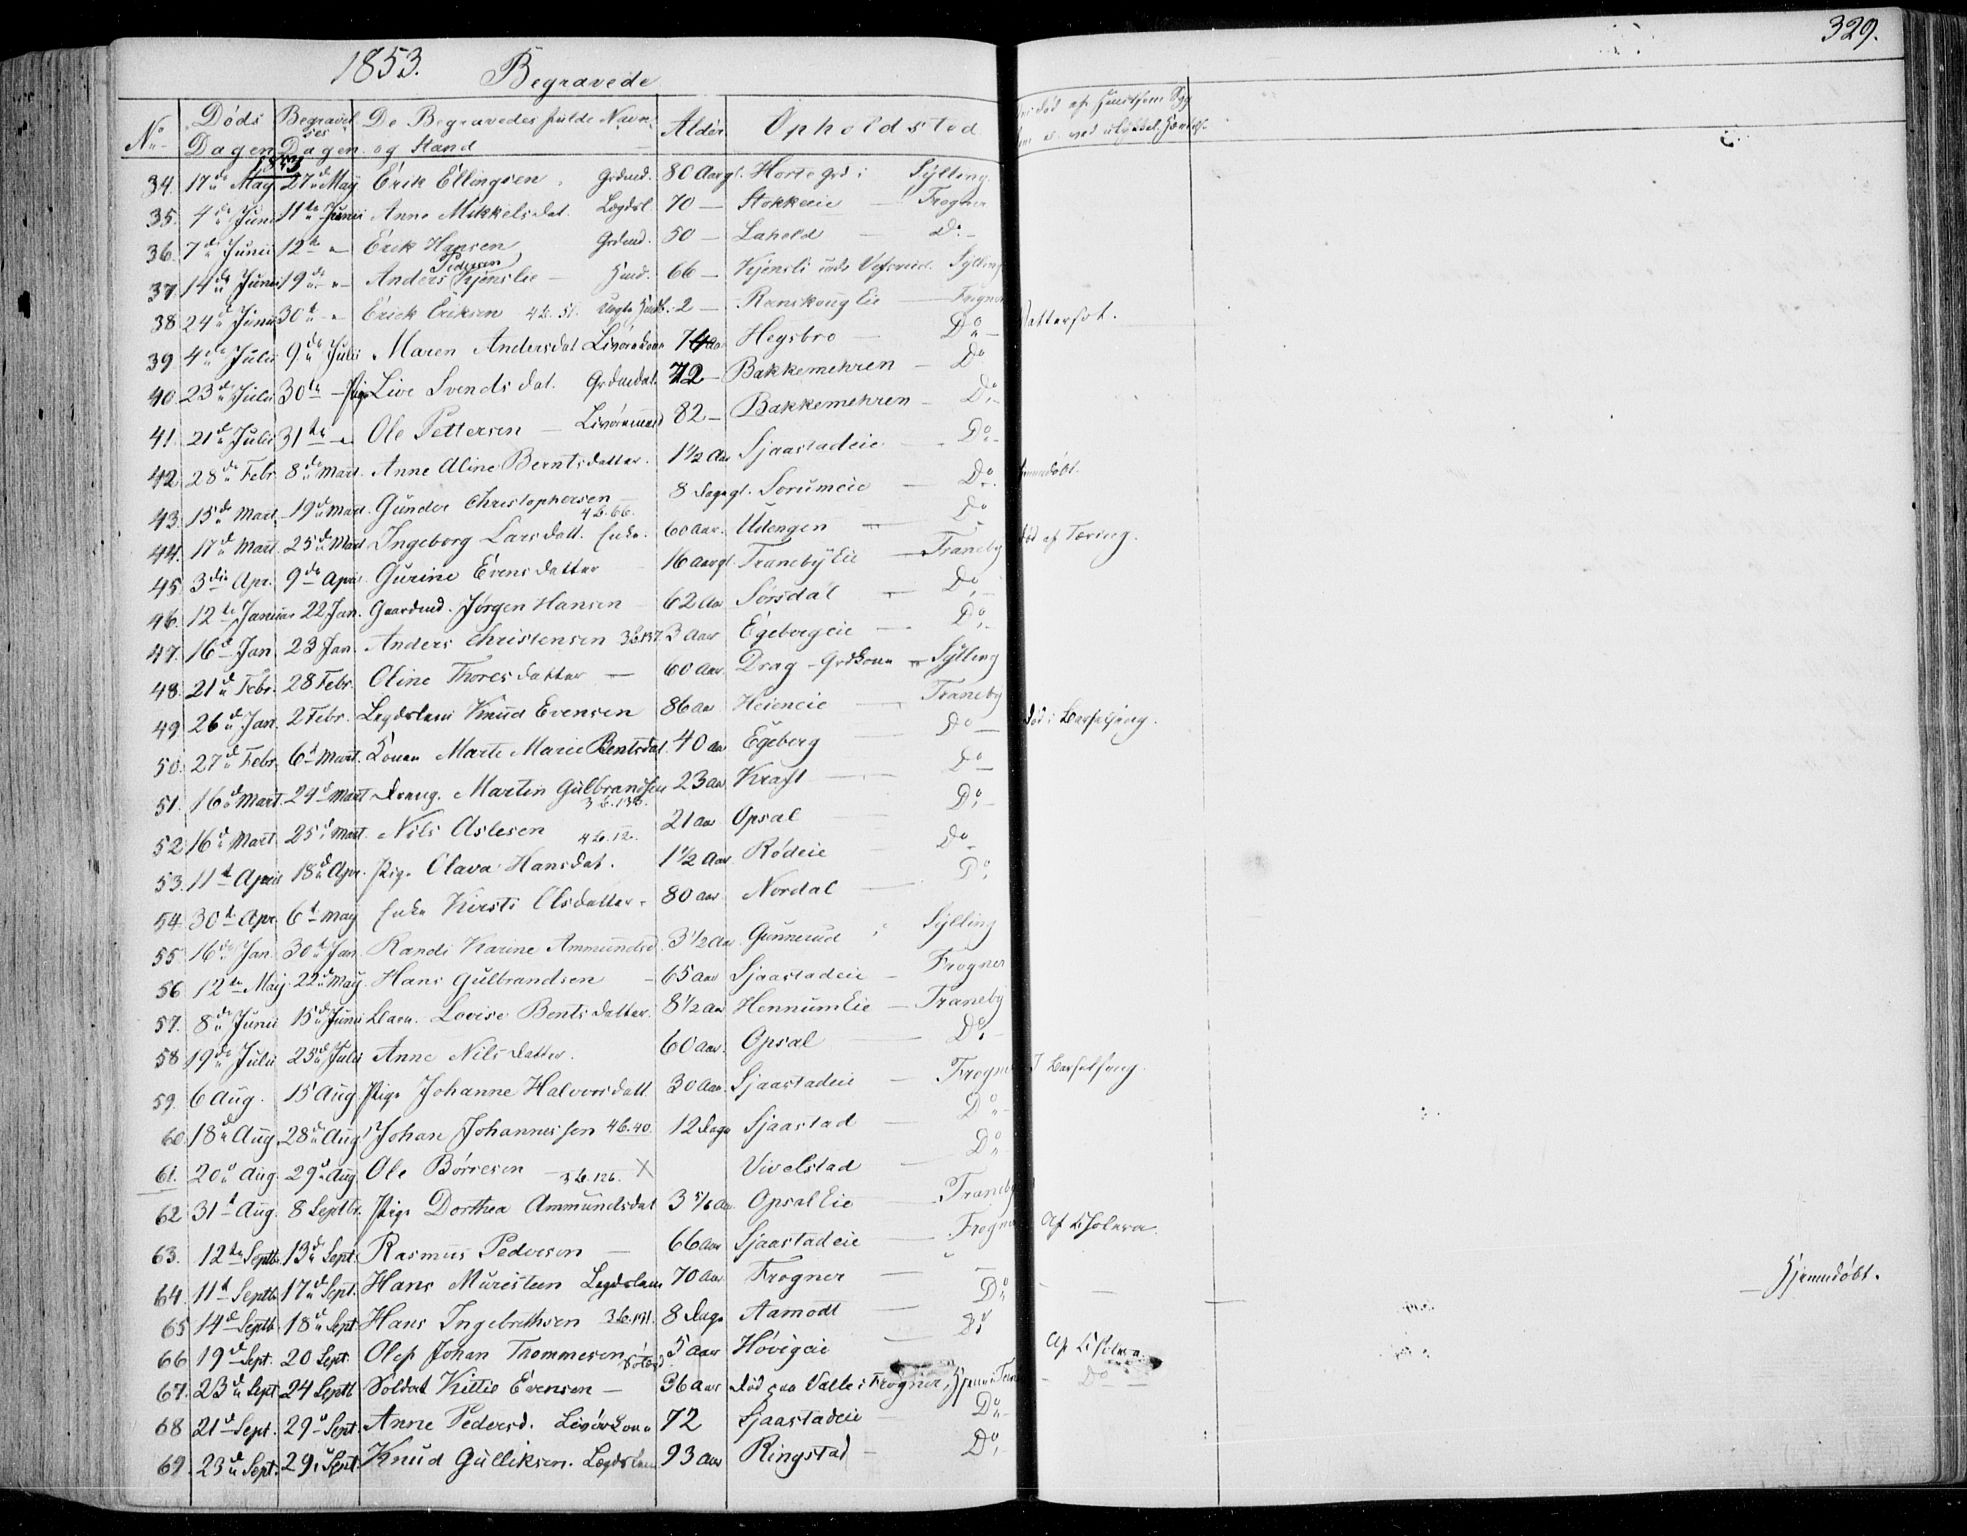 1853. Begravede 329.
No Døds Dagen Begravelses Dagen De Begravedes fulde Navn og Stand Alder Opholdsted
1853
34. 17de May 27de May Erik Ellingsen Grdmd. 80 Aar gl. Horte grd i Sylling
35. 4de Junii 11te Junii Anne Mikkelsdat. Lægdsl. 70 — Stokkeeie — Frogner
36. 7de Junii 12te — Erik Hansen Grdmd. 50 — Laheld — Do
37. 14de Junii 19de — Anders Pedersen Kjenslie — Hmd. 66 — Kjensli Sylling
38. 24de Junii 30te — Erick Eriksen 4 L. 51. 2 — Ranskoug Eie — Frogner
39. 4de Julii 9de Julii Maren Andersdat Livørekone 74 Aar Hegsbro — Do
40. 23de Julii 30te — Pige Live Svendsdat. Grdmdat. 72 — Bakkemehren — Do
41. 21de Julii 31te — Ole Pettersen — Livøremand 82 — Bakkemehren — Do
42. 28de Febr. 8de Mart. Anne Aline Berntsdatter. 1 1/2 Aar Sjaastadeie — Do
43. 15de Mart. 19de Mart. Gunder Christophersen — 4 L. 66. 8 Dage gl. Sorumeie — Do
44. 17de Mart. 25de Mart. Ingeborg Larsdatt. Enke. 60 Aar. Udengen — Do Død af Tæring.
45. 3die Apr. 9de Apr. Gurine Evensdatter — 16 aar gl. Tranebÿ Eie — Traneby
46. 12te Januar 22 Jan. Gaardmd. Jørgen Hansen — 62 Aar Sørsdal — Do
47. 16de Jan. 23 Jan. Anders Christensen 3 L. 137. 3 Aar Egebergeie — Do
48. 21de Febr. 28 Febr. Oline Thoresdatter — 60 Aar. Drag — Grdkone — Sylling
49. 26de Jan. 2 Febr. Lægdslem Knud Evensen 86 Aar Heieneie — Traneby
50. 27de Febr. 6te Mart. Konen Marte Marie Bentsdat. 40 Aar Egeberg — Do Død i Barselseng.
51. 16de Mart. 24de Mart. Dreng. Martin Gulbrandsen 3 L. 136. 23 Aar Kraft — Do
52. 16de Mart. 25de Mart. Nils Aslesen 4 L. 12. 21 Aar Opsal — Do
53. 11te April 18de Apr. Pige Olava Hansdat. 1 1/2 Aar Rødeie — Do
54. 30te Apr. 6te May Enke Kirsti Olsdatter 80 Aar Nordal — Do
55. 16de Jan. 30te Jan. Randi Karine Ammundsd. 3 1/2 Aar Gunnerud Sylling
56. 12te May 22de May. Hans Gulbrandsen — 65 Aar Sjaastadeie — Frogner
57. 8de Junii 15de Junii Barn. Lovise Bentsdatter. 8 1/2 Aar Hennum Eie — Traneby
58. 19de Julii 25de Julii Anne Nilsdatter. 60 Aar. Opsal — Do
59. 6 Aug. 15 Aug. Pige Johanne Halvorsdatt. 30 Aar. Sjaastadeie — Frogner I Barselseng.
60. 18de Aug. 28de Aug. Johan Johannessen 4 L. 40. 12 Dage Sjaastad — Do
61. 20de Aug. 29de Aug. Ole Børresen — 3 L. 126. X Vivelstad — Do
62. 31te Aug. 8 Septbr. Pige Dorthea Ammundsdat 3 5/6 Aar Opsal Eie — Traneby
63. 12te Septb. 13de Sept. Rasmus Pedersen — 66 Aar Sjaastadeie — Frogner Af Cholera.
64. 11te Septb. 17de Sept. Hans Muresteen Lægdslem 70 Aar Frogner —
65. 14de Septb. 18de Sept. Hans Ingebrethsen 3 L. 191. 8 Dage Aamodt — Do Hjemmedøbt.
66. 19de Sept. 20 Sept. Ole Johan Trommesen 5 Aar Høvigeie — Do Af Cholera.
67. 23de Sept. 24 Septb. Soldat Kittil Evensen — 36 Aar død paa Valle i Frogner, Do
68. 21de Sept. 29de Sept. Anne Pedersd. Livørkone 72 Sjaastadeie — Do
69. 23de Sept. 29de Sept. Knud Gulliksen. Lægdslem 93 Aar Ringstad — Do